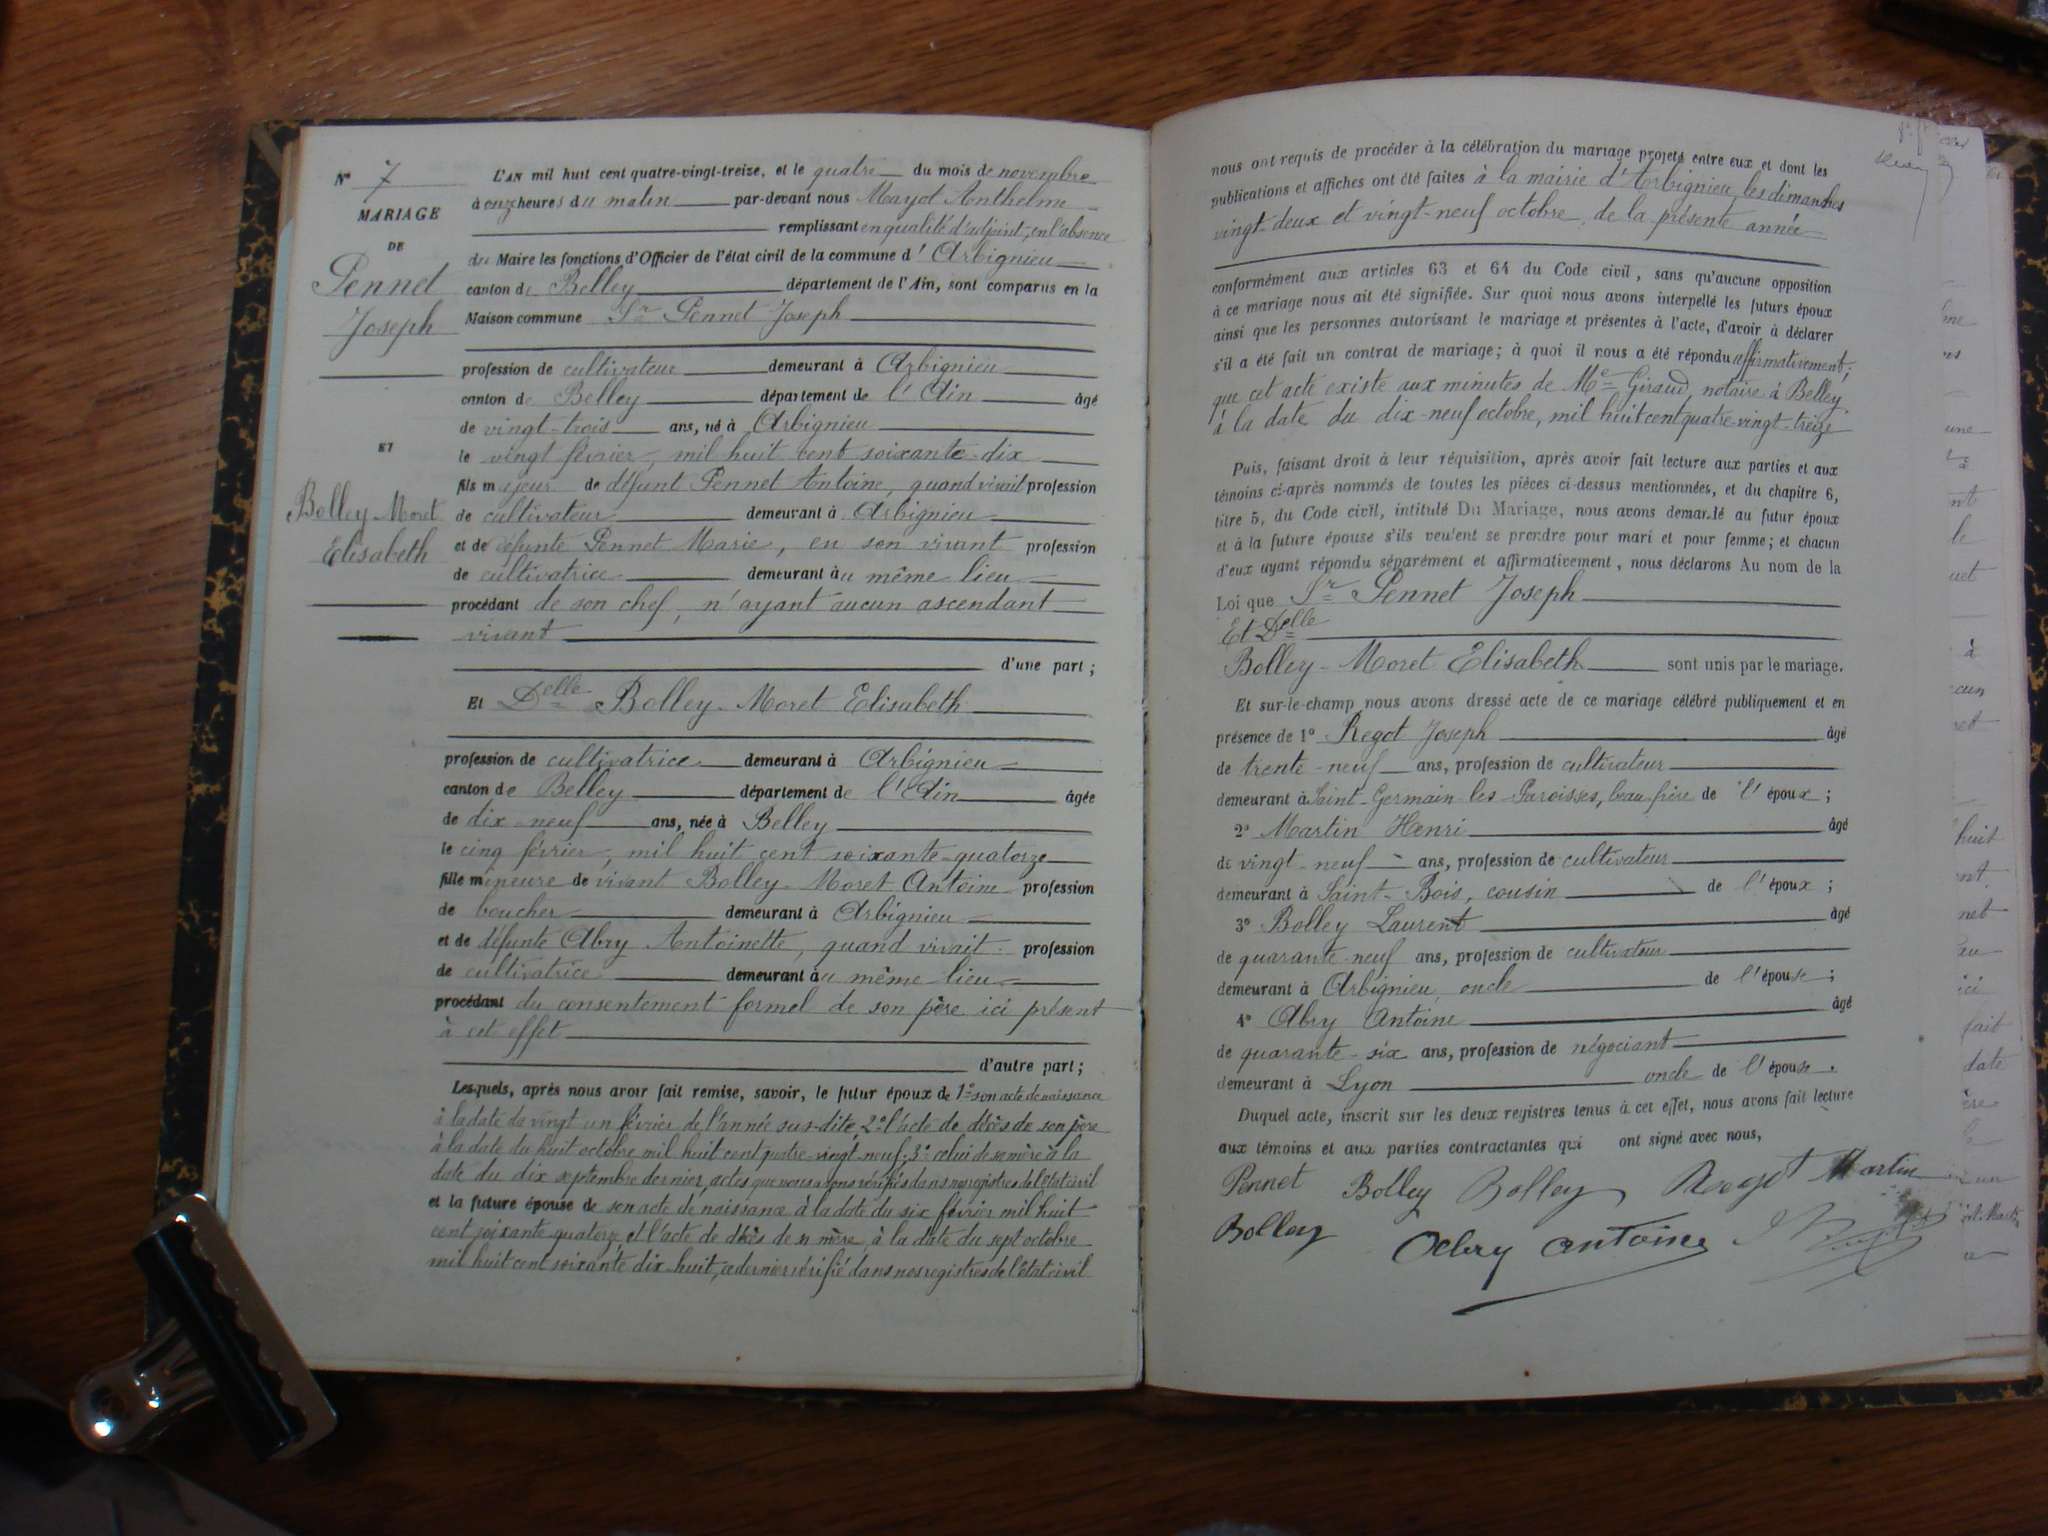 N° 7
MARIAGE
DE
Pennet
Joseph
ET
Bolley-Moret
Elisabeth
L'AN mil huit cent quatre-vingt-treize, et le quatre du mois de novembre
à onze heures du matin par-devant nous Mayot Anthelme
remplissant en qualité d'adjoint, en l'absence
du Maire les fonctions d'Officier de l'état civil de la commune d'Arbignieu
canton de Belley département de l'Ain, sont comparus en la
Maison commune Sr Pennet Joseph
profession de cultivateur demeurant à Arbignieu
canton de Belley département de l'Ain âgé
de vingt-trois ans, né à Arbignieu
le vingt février, mil huit cent soixante-dix
fils majeur de défunt Pennet Antoine, quand vivait profession
de cultivateur demeurant à Arbignieu
et de défunte Pennet Marie, en son vivant profession
de cultivatrice demeurant au même lieu
procédant de son chef, n'ayant aucun ascendant
vivant
d'une part ;
Et Delle Bolley-Moret Elisabeth
profession de cultivatrice demeurant à Arbignieu
canton de Belley département de l'Ain âgée
de dix-neuf ans, née à Belley
le cinq février, mil huit cent soixante-quatorze
fille mineure de vivant Bolley-Moret Antoine profession
de boucher demeurant à Arbignieu
et de défunte Abry Antoinette, quand vivait profession
de cultivatrice demeurant au même lieu
procédant du consentement formel de son père ici présent
à cet effet
d'autre part ;
Lesquels, après nous avoir fait remise, savoir, le futur époux de 1° son acte de naissance
à la date du vingt un février de l'année sus-dite, 2° l'acte de décès de son père
à la date du huit octobre mil huit cent quatre-vingt-neuf; 3° celui de sa mère à la
date du dix septembre dernier, actes que nous avons vérifiés dans nos registres de l'état civil
et la future épouse de son acte de naissance à la date du six février mil huit
cent soixante quatorze et l'acte de décès de sa mère, à la date du sept octobre
mil huit cent soixante dix-huit, ce dernier vérifié dans nos registres de l'état civil
nous ont requis de procéder à la célébration du mariage projeté entre eux et dont les
publications et affiches ont été faites à la mairie d'Arbignieu, les dimanches
vingt-deux et vingt-neuf octobre, de la présente année
conformément aux articles 63 et 64 du Code civil, sans qu'aucune opposition
à ce mariage nous ait été signifiée. Sur quoi nous avons interpellé les futurs époux
ainsi que les personnes autorisant le mariage et présentes à l'acte, d'avoir à déclarer
s'il a été fait un contrat de mariage; à quoi il nous a été répondu affirmativement;
que cet acte existe aux minutes de Me Giraud, notaire à Belley
à la date du dix-neuf octobre, mil huit cent quatre-vingt-treize
Puis, faisant droit à leur réquisition, après avoir fait lecture aux parties et aux
témoins ci-après nommés de toutes les pièces ci-dessus mentionnées, et du chapitre 6,
titre 5, du Code civil, intitulé Du Mariage, nous avons demandé au futur époux
et à la future épouse s'ils veulent se prendre pour mari et pour femme; et chacun
d'eux ayant répondu séparément et affirmativement, nous déclarons Au nom de la
Loi que Sr Pennet Joseph
Et Delle
Bolley-Moret Elisabeth sont unis par le mariage.
Et sur-le-champ nous avons dressé acte de ce mariage célébré publiquement et en
présence de 1° Regot Joseph âgé
de trente-neuf ans, profession de cultivateur
demeurant à Saint-Germain les Paroisses, beau-frère de l'époux ;
2° Martin Henri âgé
de vingt-neuf ans, profession de cultivateur
demeurant à Saint-Bois, cousin de l'époux ;
3° Bolley Laurent âgé
de quarante-neuf ans, profession de cultivateur
demeurant à Arbignieu, oncle de l'épouse ;
4° Abry Antoine âgé
de quarante-six ans, profession de négociant
demeurant à Lyon oncle de l'épouse.
Duquel acte, inscrit sur les deux registres tenus à cet effet, nous avons fait lecture
aux témoins et aux parties contractantes qui ont signé avec nous,
Pennet Bolley Bolley Regot Martin
Bolley Abry Antoine